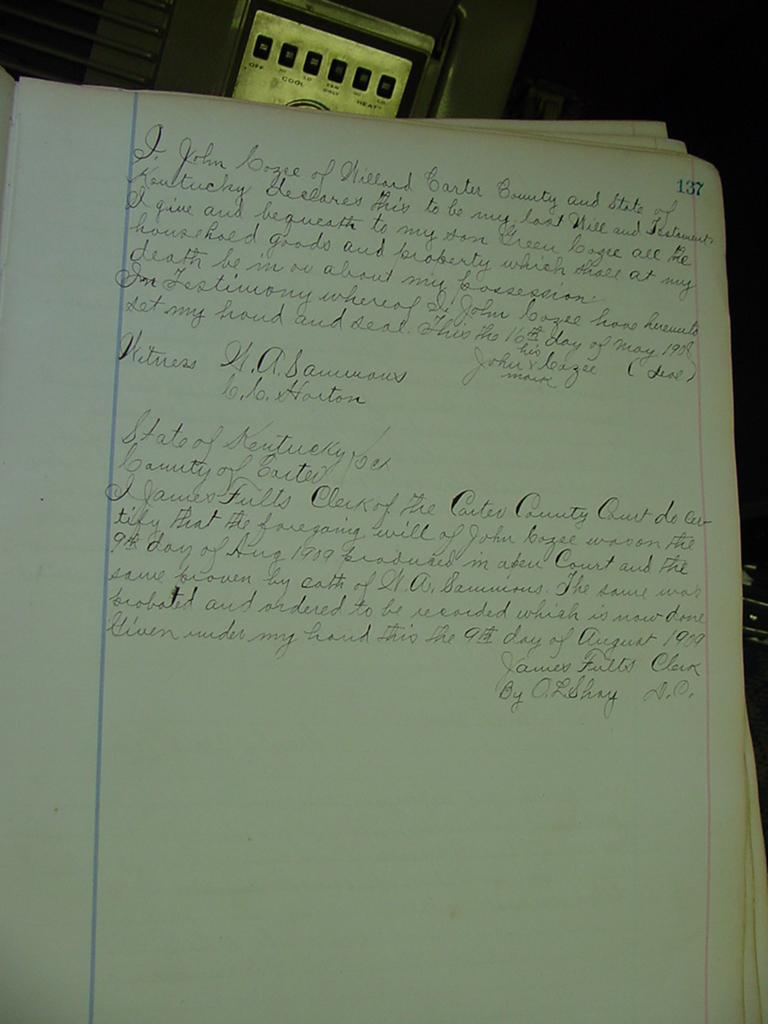 OFF HI LO FAN ONLY HI LO
COOL HEAT
137
I, John Cozee of Willard Carter County and State of
Kentucky declares this to be my last Will and Testament
I give and bequeath to my son Green Cozee all the
household goods and property which shall at my
death be in or about my possession.
In Testimony whereof I, John Cozee have hereunto
set my hand and seal. This the 16th day of May 1908
his
John x Cozee (Seal)
mark
Witness W. A. Sammons
C. C. Horton
State of Kentucky } Sct
County of Carter
I James Fults Clerk of the Carter County Court do cer-
tify that the foregoing will of John Cozee was on the
9th day of Aug 1909 produced in open Court and the
same proven by oath of W. A. Sammons. The same was
probated and ordered to be recorded which is now done
Given under my hand this the 9th day of August 1909
James Fults Clerk
By O. L. Shay D.C.